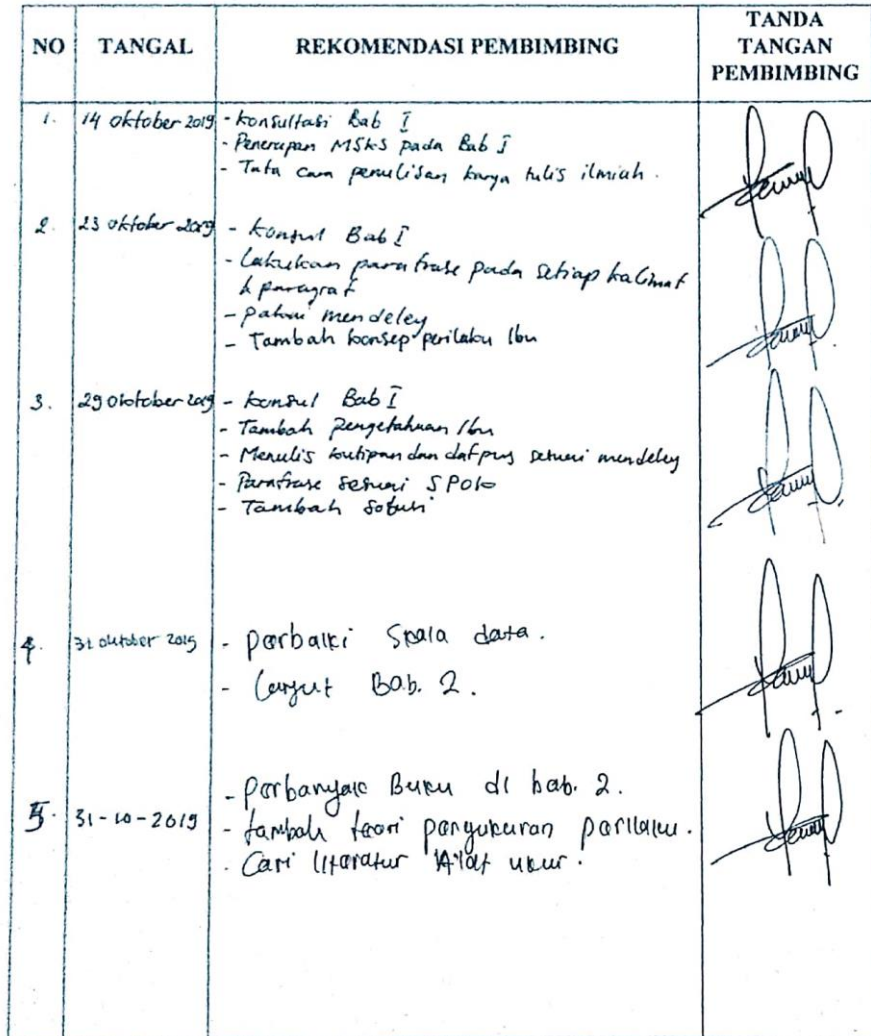 NO TANGAL REKOMENDASI PEMBIMBING TANDA TANGAN PEMBIMBING
1. 14 oktober 2019 - konsultasi Bab I
- Penerapan MSKS pada Bab I
- Tata cara penulisan karya tulis ilmiah.
2. 23 oktober 2019 - konsul Bab I
- Lakukan parafrase pada setiap kalimat
& paragraf
- pakai mendeley
- Tambah konsep perilaku Ibu
3. 29 oktober 2019 - konsul Bab I
- Tambah pengetahuan Ibu
- Menulis kutipan dan dafpus sesuai mendeley
- Parafrase sesuai SPOK
- Tambah solusi
4. 31 oktober 2019 - perbaiki Skala data.
- Lanjut Bab. 2.
5. 31-10-2019 - perbanyak Buku di bab. 2.
- tambah teori pengukuran perilaku.
- Cari literatur Alat ukur.